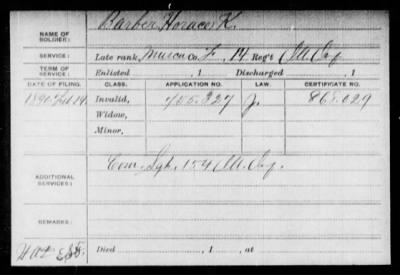 NAME OF
SOLDIER:
Barber, Horace K.
SERVICE:
Late rank, Musicn Co. F, 14 Reg't Ill Inf
TERM OF
SERVICE:
Enlisted , 1 Discharged , 1
DATE OF FILING. CLASS. APPLICATION NO. LAW. CERTIFICATE NO.
1890 Feb 14. Invalid, 755.327 J. 865.029
Widow,
Minor,
ADDITIONAL
SERVICES:
Com. Sgt. 154 Ill Inf.
REMARKS:
Died , 1 , at